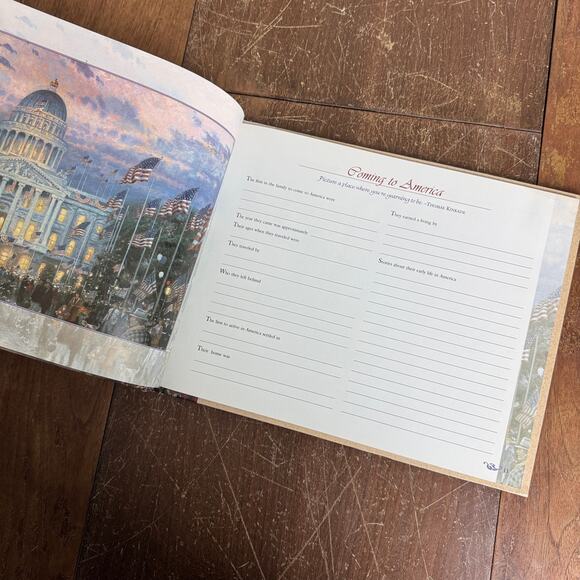 Coming to America
Picture a place where you're yearning to be. –THOMAS KINKADE
The first in the family to come to America were
The year they came was approximately
Their ages when they traveled were
They traveled by
Who they left behind
The first to arrive in America settled in
Their home was
They earned a living by
Stories about their early life in America
11